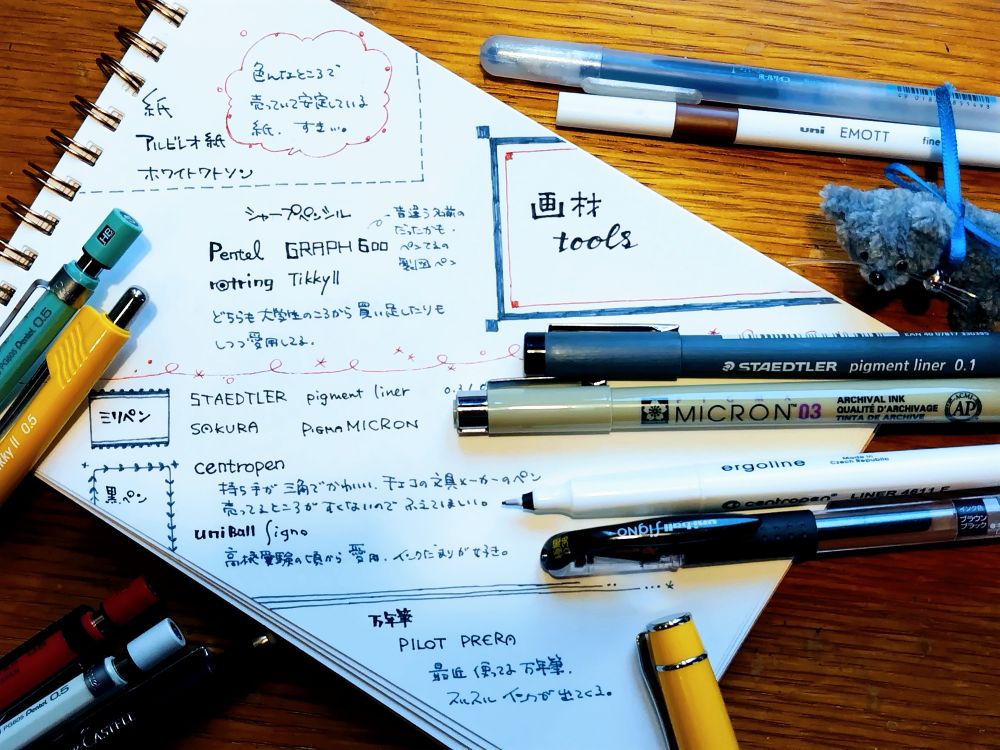 色んなところで
売っていて安定している
紙. すきい。
紙
アルビレオ紙
ホワイトワトソン
画材
tools
シャープペンシル
Pentel GRAPH 600
昔違う名前の
だったかも.
ぺんてるの
製図ペン
rotring TikkyII
どちらも大学生のころから買い足したりも
しつつ愛用してる.
ミリペン
STAEDTLER pigment liner
SAKURA PIGMA MICRON
黒ペン
centropen
持ち手が三角でかわいい. チェコの文具メーカーのペン
売ってるところがすくないのでふえてほしい。
uniBall Signo
高校受験の頃から愛用. インクだまりが好き。
万年筆
PILOT PRERA
最近使ってる万年筆.
スルスルインクが出てくる。
uni EMOTT fine
STAEDTLER pigment liner 0.1
PIGMA
MICRON 03
ARCHIVAL INK
QUALITÉ D'ARCHIVAGE
TINTA DE ARCHIVE
AP
ergoline
Made in
Czech Republic
centropen LINER 4611 F
uni-ball SigNO
インク色
ブラウン
ブラック
HB
PG605 Pentel 0.5
Tikky II 0.5
PG605 Pentel 0.5
CASTELL